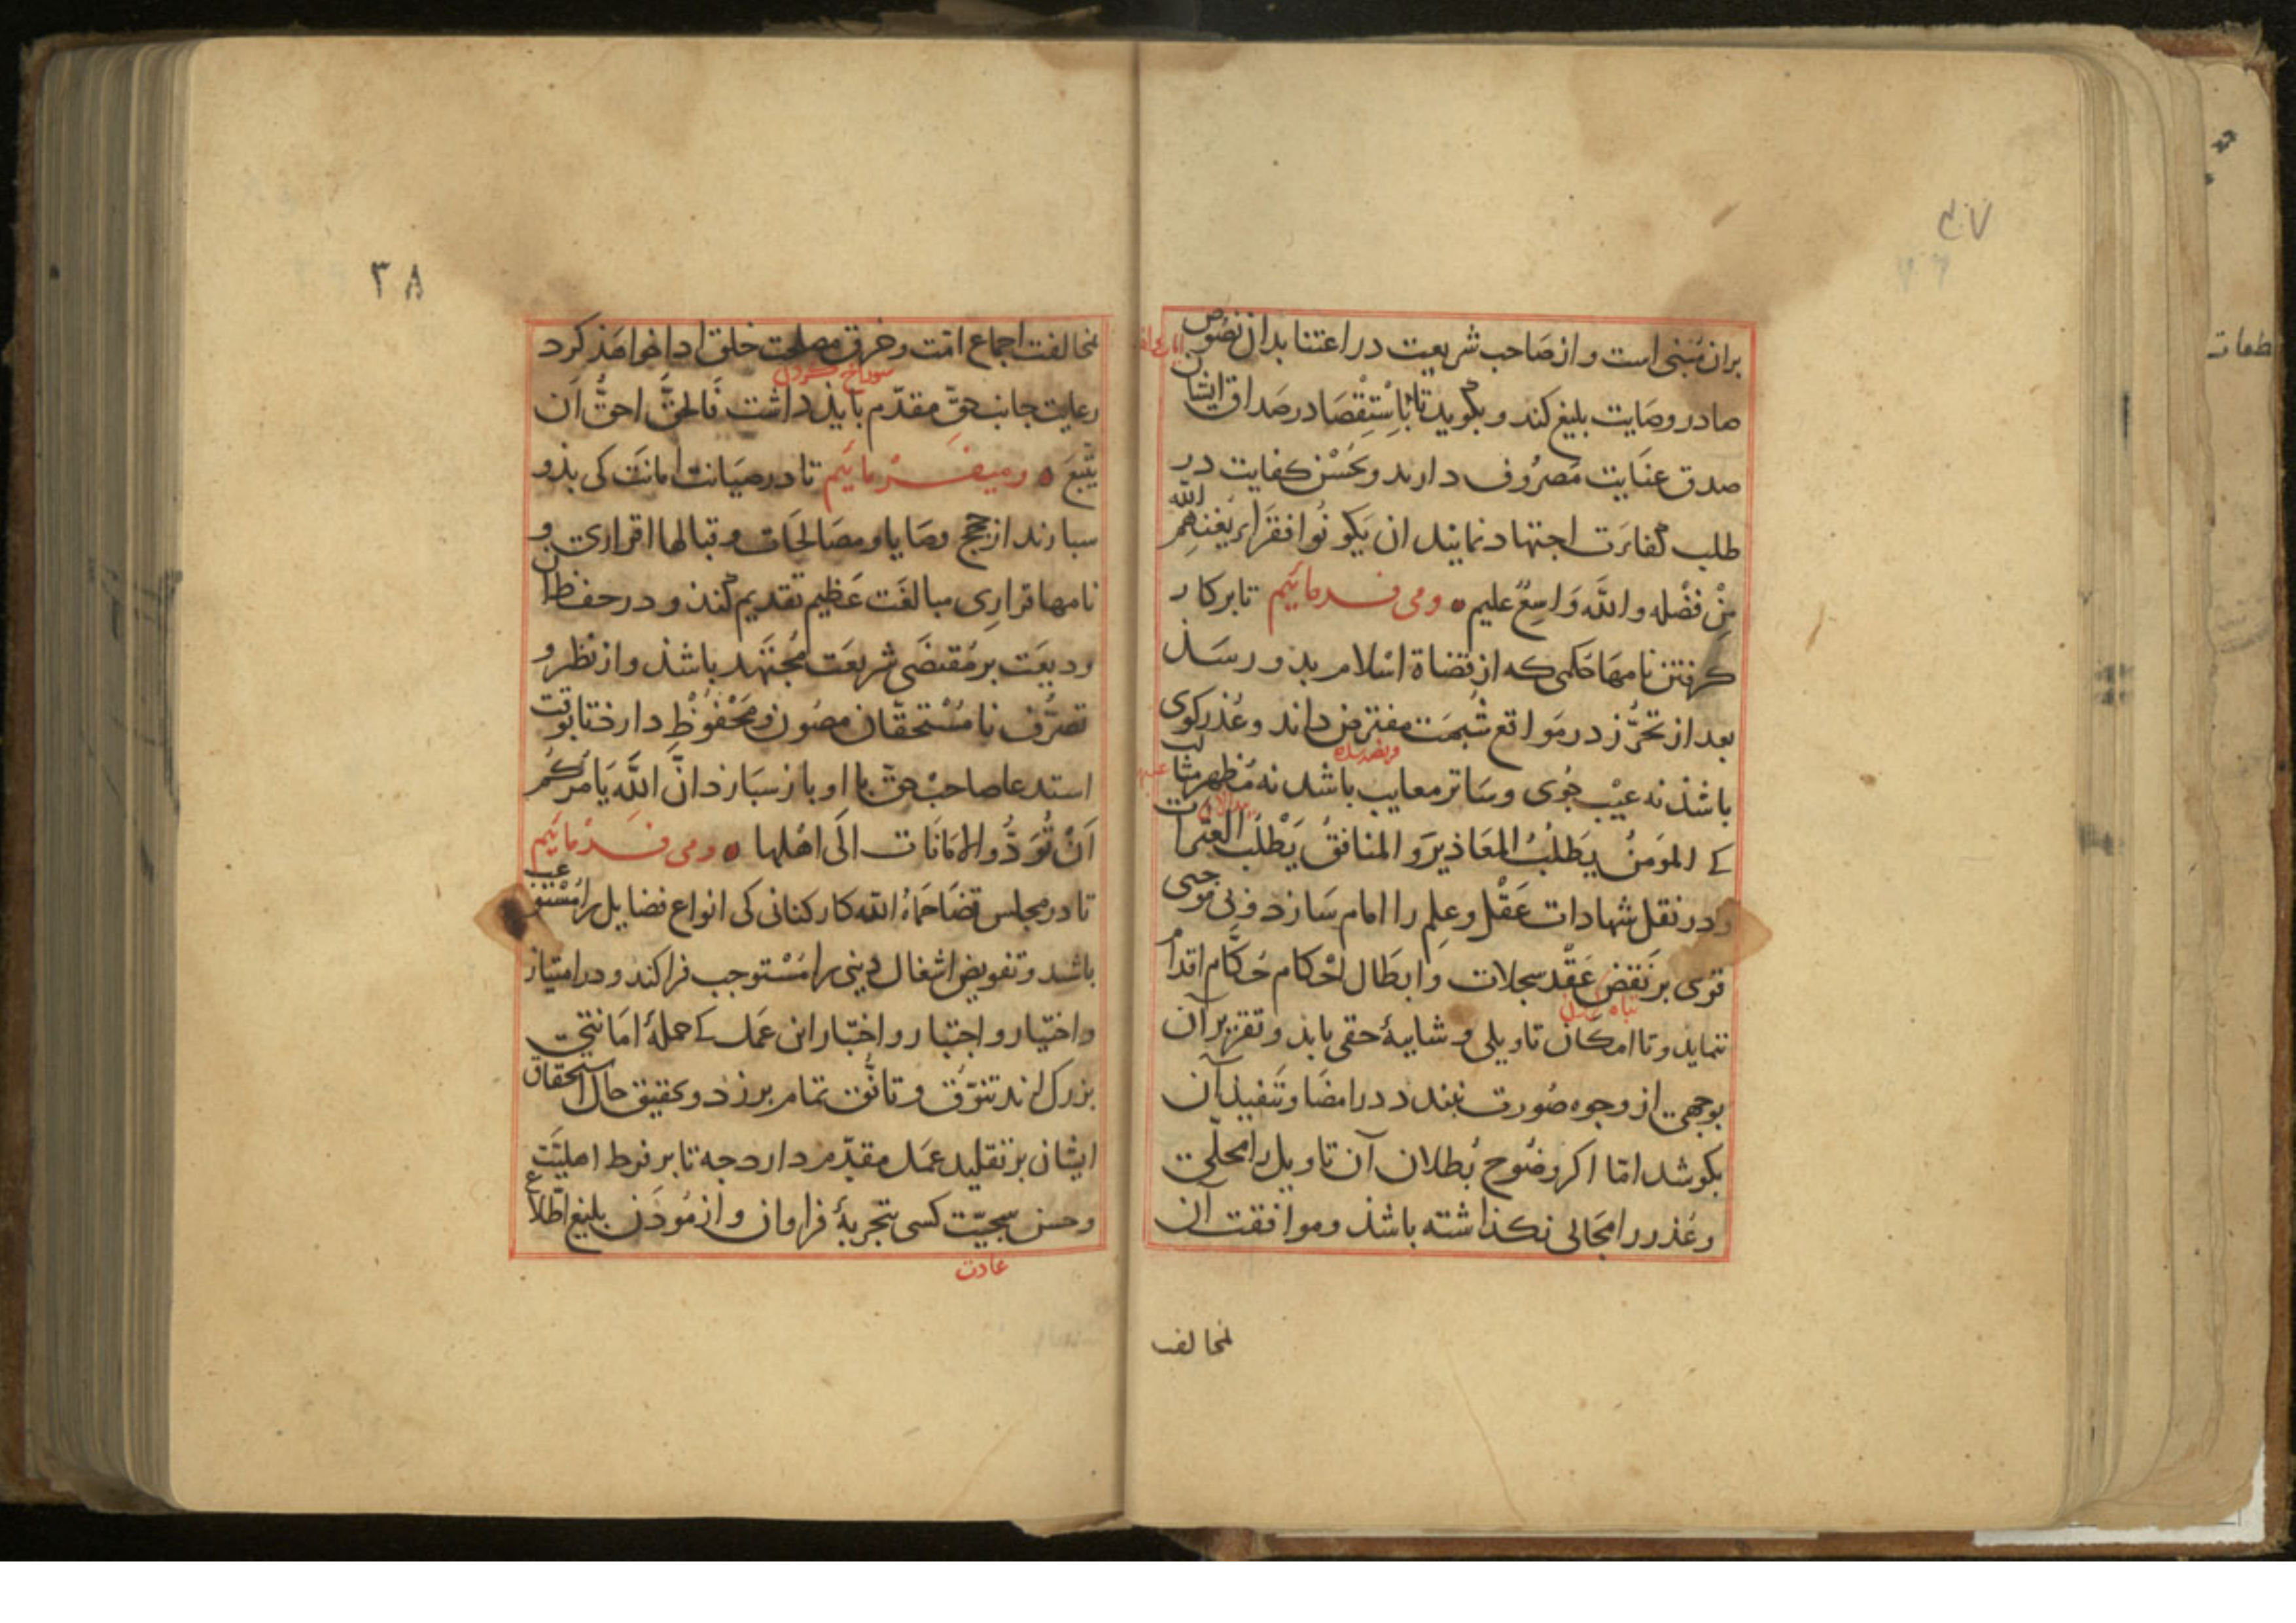 بران مبنی است و از صاحب شریعت در اعتنا بدان نصوص
صادر وصایت بلیغ کند و بگوید تا باستقصا در صداق ایشان
صدق عنایت مصروف دارند و بحسن کفایت در
طلب کفاءت اجتهاد نمایند ان یکونوا فقراء یغنهم الله
من فضله والله واسع علیم ومی فرمائیم تا بر کار
گرفتن نامها حکمی که از قضاة اسلام بذو رسذ
بعد از تحرز در مواقع شبهت مفترض داند و عذر کوی
فریضه شده
باشذ نه عیب جوی و ساتر معایب باشد نه مظهر مثالب
کی المؤمن یطلب المعاذیر و المنافق یطلب العثرات
و در نقل شهادات عقل و علم را امام سازد و بی موجبی
قوی بر نقض عقد سجلات و ابطال احکام حکام اقدام
تباه کردن
ننماید و تا امکان تاویلی و شایبۀ حقی یابد و تقریر آن
بوجهی از وجوه صورت بندد در امضا و تنفیذ آن
بکوشد اما اکر وضوح بطلان آن تاویل را محلی
و عذر را مجالی نکذاشته باشذ و موافقت آن
مخالف
۳۸
مخالفت اجماع امت و خرق مصلحت خلق ادا خواهذ کرد
سوراخ کردن
رعایت جانب حق مقدم بایذ داشت فالحق احق ان
یتبع ومیفرمائیم تا در صیانت امانت کی بذو
سبارند از حجج وصایا و مصالحات و قبالها اقراری و
نامها قراری مبالغت عظیم تقدیم کنذ و در حفظ ان
ودیعت بر مقتضی شریعت مجتهد باشذ و از نظر و
تصرف نامستحقان مصون و محفوظ دارد تا بوقت
استدعا صاحب حق با او باز سبارد ان الله یامرکم
ان تؤدوا الامانات الی اهلها ومی فرمائیم
تا در مجلس قضا حماه الله کارکنانی کی انواع فضایل را مستوعب
باشد و تفویض اشغال دینی را مستوجب فرا کند و در امتیاز
و اختیار و اجتبار و اختبار این عمل کی حملۀ امانتی
بزرك اند تنوق و تانق تمام برزد و تحقیق حال استحقاق
ایشان بر تقلید عمل مقدم دارد چه تا بر فرط اهلیت
و حسن سجیت کسی بتجربۀ فراوان و ازمودن بلیغ اطلاع
عادت